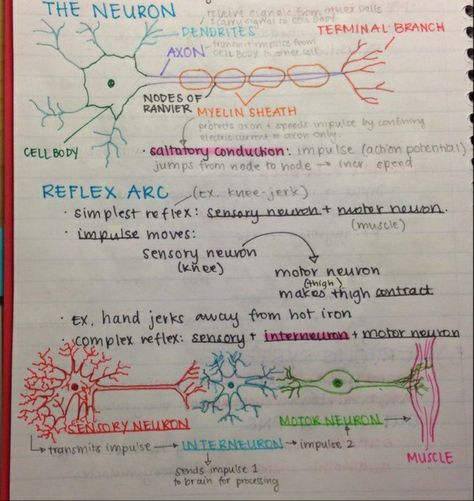 THE NEURON
receive signals from other cells
& carry signal to cell body
DENDRITES
TERMINAL BRANCH
AXON
transmit impulse from
CELL BODY to other cell
NODES OF
RANVIER
MYELIN SHEATH
protects axon + speeds impulse by confining
electric current to axon only.
CELL BODY
· saltatory conduction: impulse (action potential)
jumps from node to node → incr. speed
REFLEX ARC
(Ex. knee-jerk)
· simplest reflex: sensory neuron + motor neuron.
(muscle)
· impulse moves:
sensory neuron
(knee)
motor neuron
(thigh)
makes thigh contract
· Ex. hand jerks away from hot iron
· complex reflex: sensory + interneuron + motor neuron
SENSORY NEURON
MOTOR NEURON
→ transmits impulse → INTERNEURON → impulse 2
MUSCLE
sends impulse 1
to brain for processing